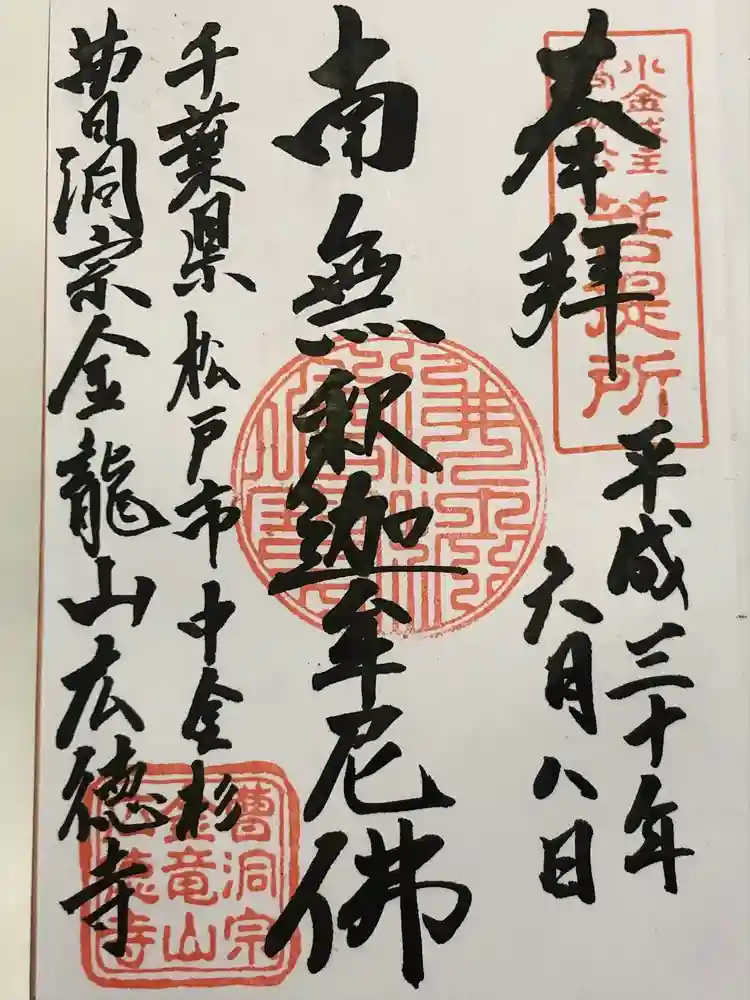 奉拝
小金城主
菩提所
平成三十年
六月八日
南無釈迦牟尼佛
千葉県松戸市中金杉
曹洞宗金龍山広徳寺
曹洞宗
金竜山
広徳寺